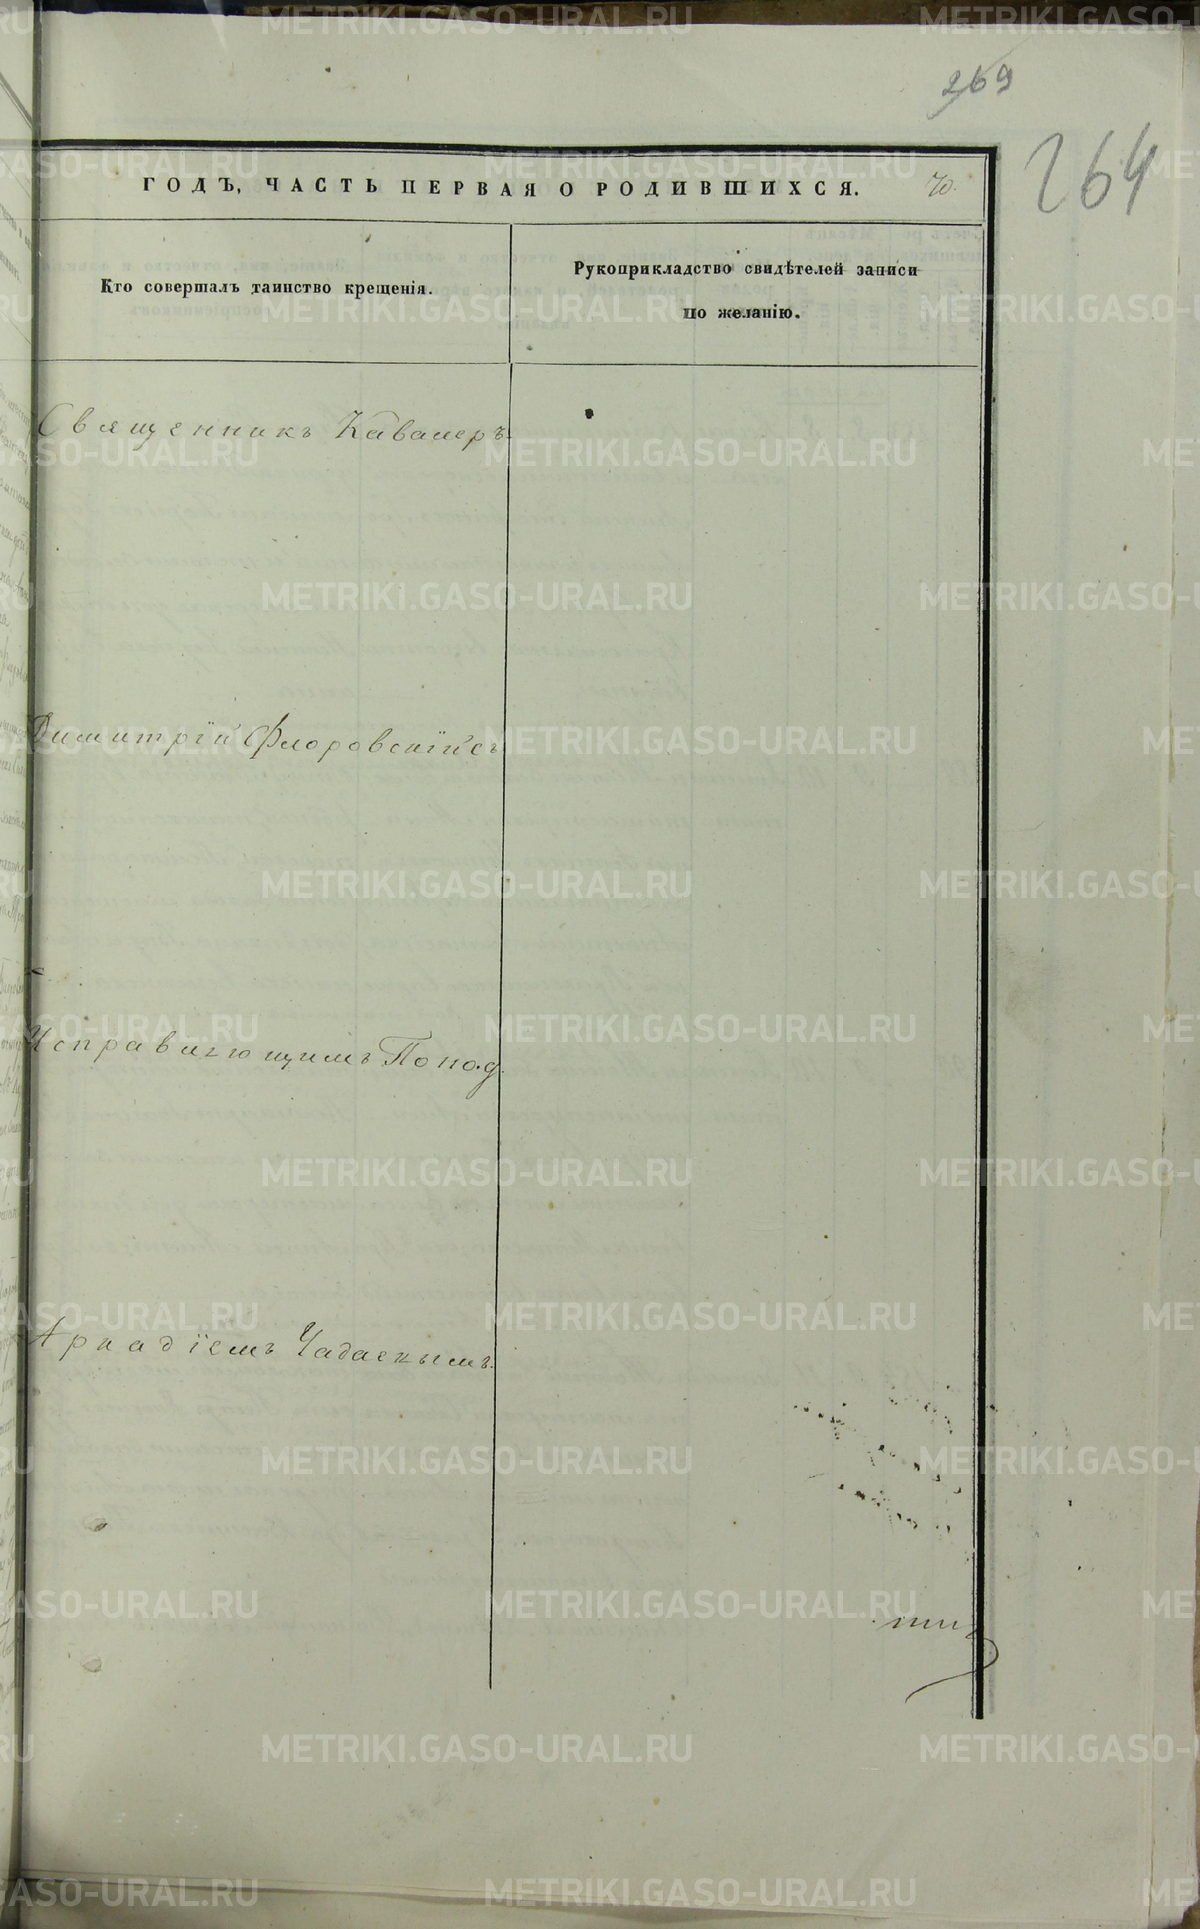 269
264
ГОДЪ, ЧАСТЬ ПЕРВАЯ О РОДИВШИХСЯ. 70.
Кто совершалъ таинство крещенія.
Рукоприкладство свидѣтелей записи
по желанію.
Священникъ Кавалеръ
Димитрій Флоровскій съ
Исправляющимъ Поно.д.
Аркадіемъ
METRIKI.GASO-URAL.RU